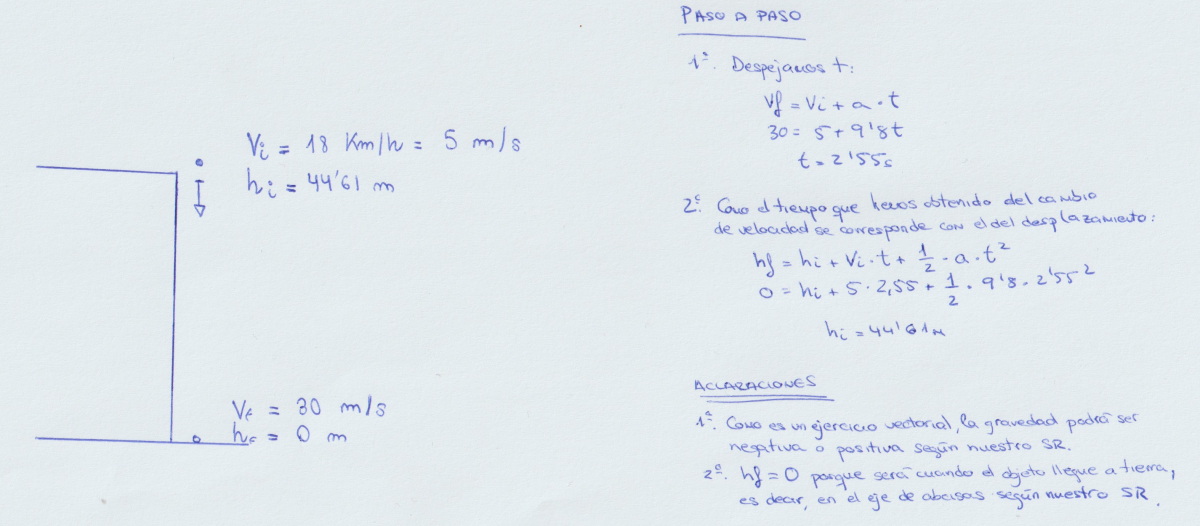 Vi = 18 Km/h = 5 m/s
hi = 44'61 m
Vf = 30 m/s
hf = 0 m
PASO A PASO
1º. Despejamos t:
Vf = Vi + a · t
30 = 5 + 9'8t
t = 2'55s
2º. Como el tiempo que hemos obtenido del cambio
de velocidad se corresponde con el del desplazamiento:
hf = hi + Vi · t + 1/2 · a · t²
0 = hi + 5 · 2,55 + 1/2 · 9'8 · 2'55²
hi = 44'61m
ACLARACIONES
1ª. Como es un ejercicio vectorial, la gravedad podrá ser
negativa o positiva según nuestro SR.
2ª. hf = 0 porque será cuando el objeto llegue a tierra,
es decir, en el eje de abcisas según nuestro SR.